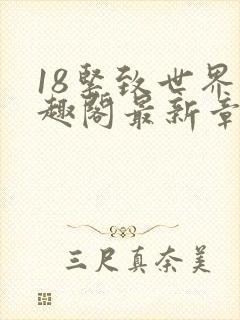 18坚致世界
趣阁最新章
三尺真奈美